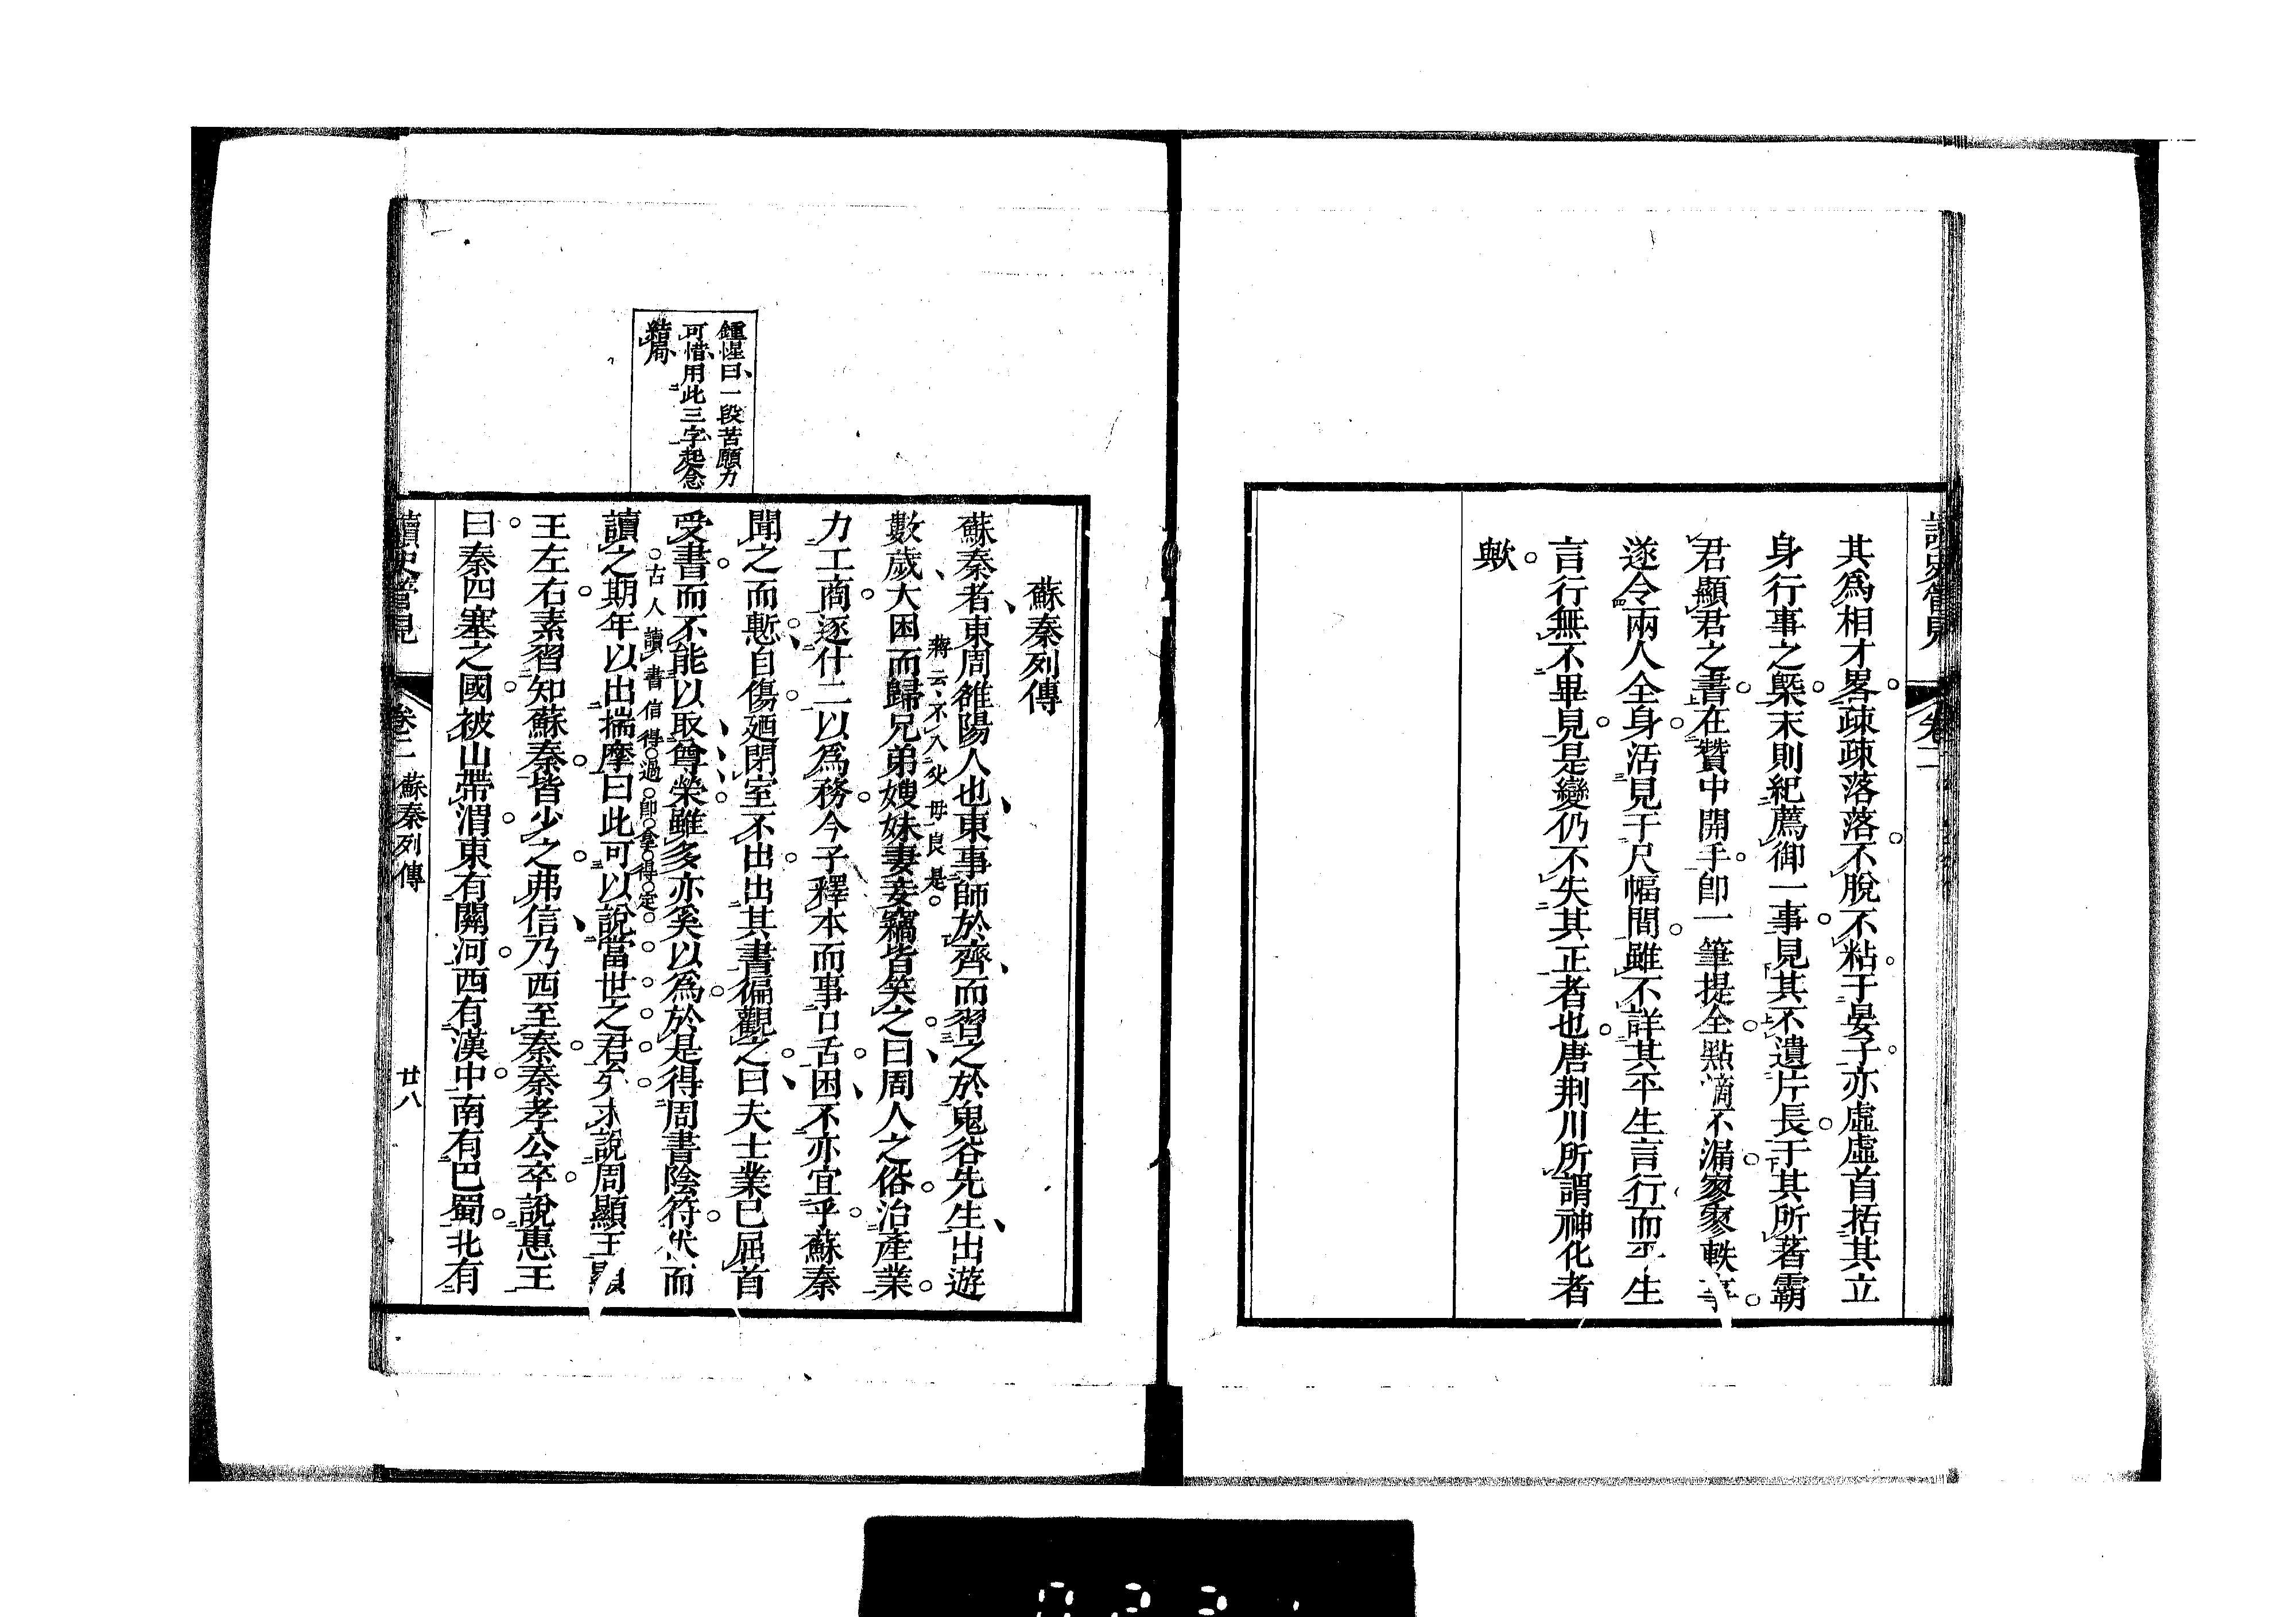 讀史管見
卷二
其爲相才畧疎疎落落不脫不粘于晏子亦虛虛首括其立
身行事之槩末則紀薦御一事見其不遺片長于其所著霸
君顯君之書在贊中開手卽一筆提全點滴不漏寥寥軼事
遂令兩人全身活見于尺幅間雖不詳其平生言行而平生
言行無不畢見是變仍不失其正者也唐荆川所謂神化者
歟
蘇秦列傳
蘇秦者東周雒陽人也東事師於齊而習之於鬼谷先生出遊
蔣云不入父母良是
數歲大困而歸兄弟嫂妹妻妾竊皆笑之曰周人之俗治產業
力工商逐什二以爲務今子釋本而事口舌困不亦宜乎蘇秦
聞之而慙自傷廼閉室不出出其書徧觀之曰夫士業已屈首
受書而不能以取尊榮雖多亦奚以爲於是得周書陰符伏而
古人讀書信得過卽拿得定
讀之期年以出揣摩曰此可以說當世之君矣求說周顯王顯
王左右素習知蘇秦皆少之弗信乃西至秦秦孝公卒說惠王
曰秦四塞之國被山帶渭東有關河西有漢中南有巴蜀北有
鍾惺曰一段苦願力
可惜用此三字起念
結局
讀史管見
卷二
蘇秦列傳
廿八